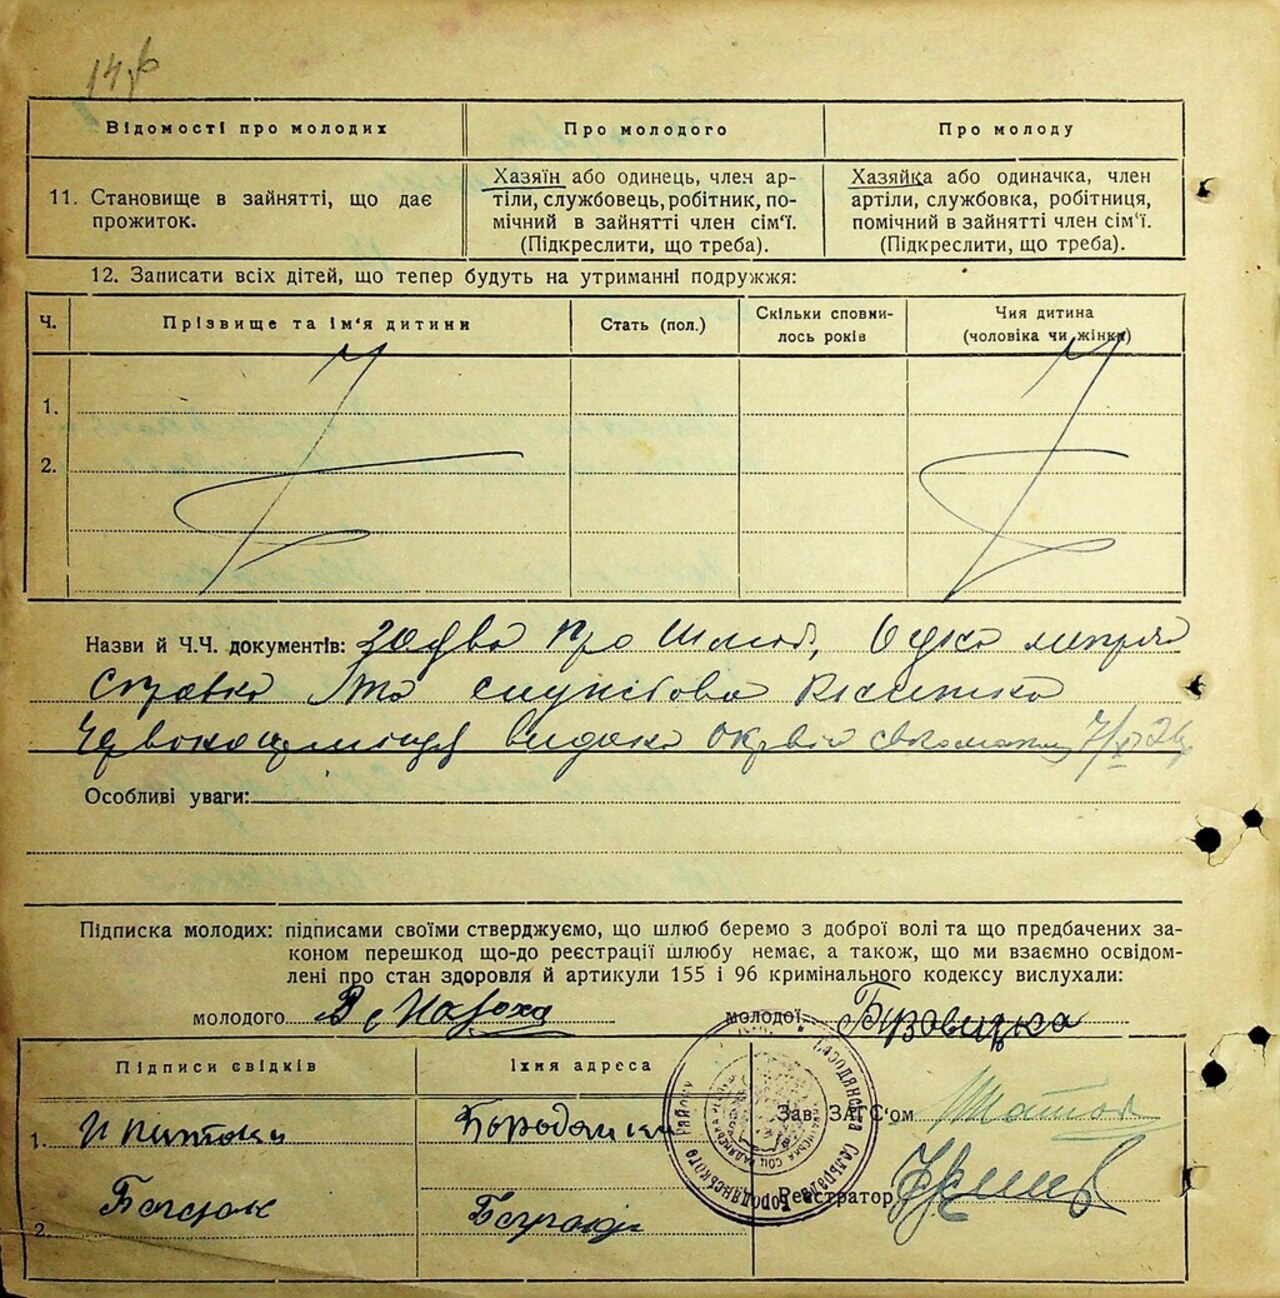 Відомості про молодих
Про молодого
Про молоду
11. Становище в зайнятті, що дає
прожиток.
Хазяїн або одинець, член ар-
тіли, службовець, робітник, по-
мічний в зайнятті член сім'ї.
(Підкреслити, що треба).
Хазяйка або одиначка, член
артіли, службовка, робітниця,
помічний в зайнятті член сім'ї.
(Підкреслити, що треба).
12. Записати всіх дітей, що тепер будуть на утриманні подружжя:
Ч.
Прізвище та ім'я дитини
Стать (пол.)
Скільки сповни-
лось років
Чия дитина
(чоловіка чи жінки)
1.
2.
Назви й Ч.Ч. документів: про шлюб,
справка та службова книжка
видана
Особливі уваги:
Підписка молодих: підписами своїми стверджуємо, що шлюб беремо з доброї волі та що предбачених за-
коном перешкод що-до реєстрації шлюбу немає, а також, що ми взаємно освідом-
лені про стан здоровля й артикули 155 і 96 кримінального кодексу вислухали:
молодого
молодої
Підписи свідків
Їхня адреса
Зав. ЗАГС'ом
1.
Бородянського району
Реєстратор
2.